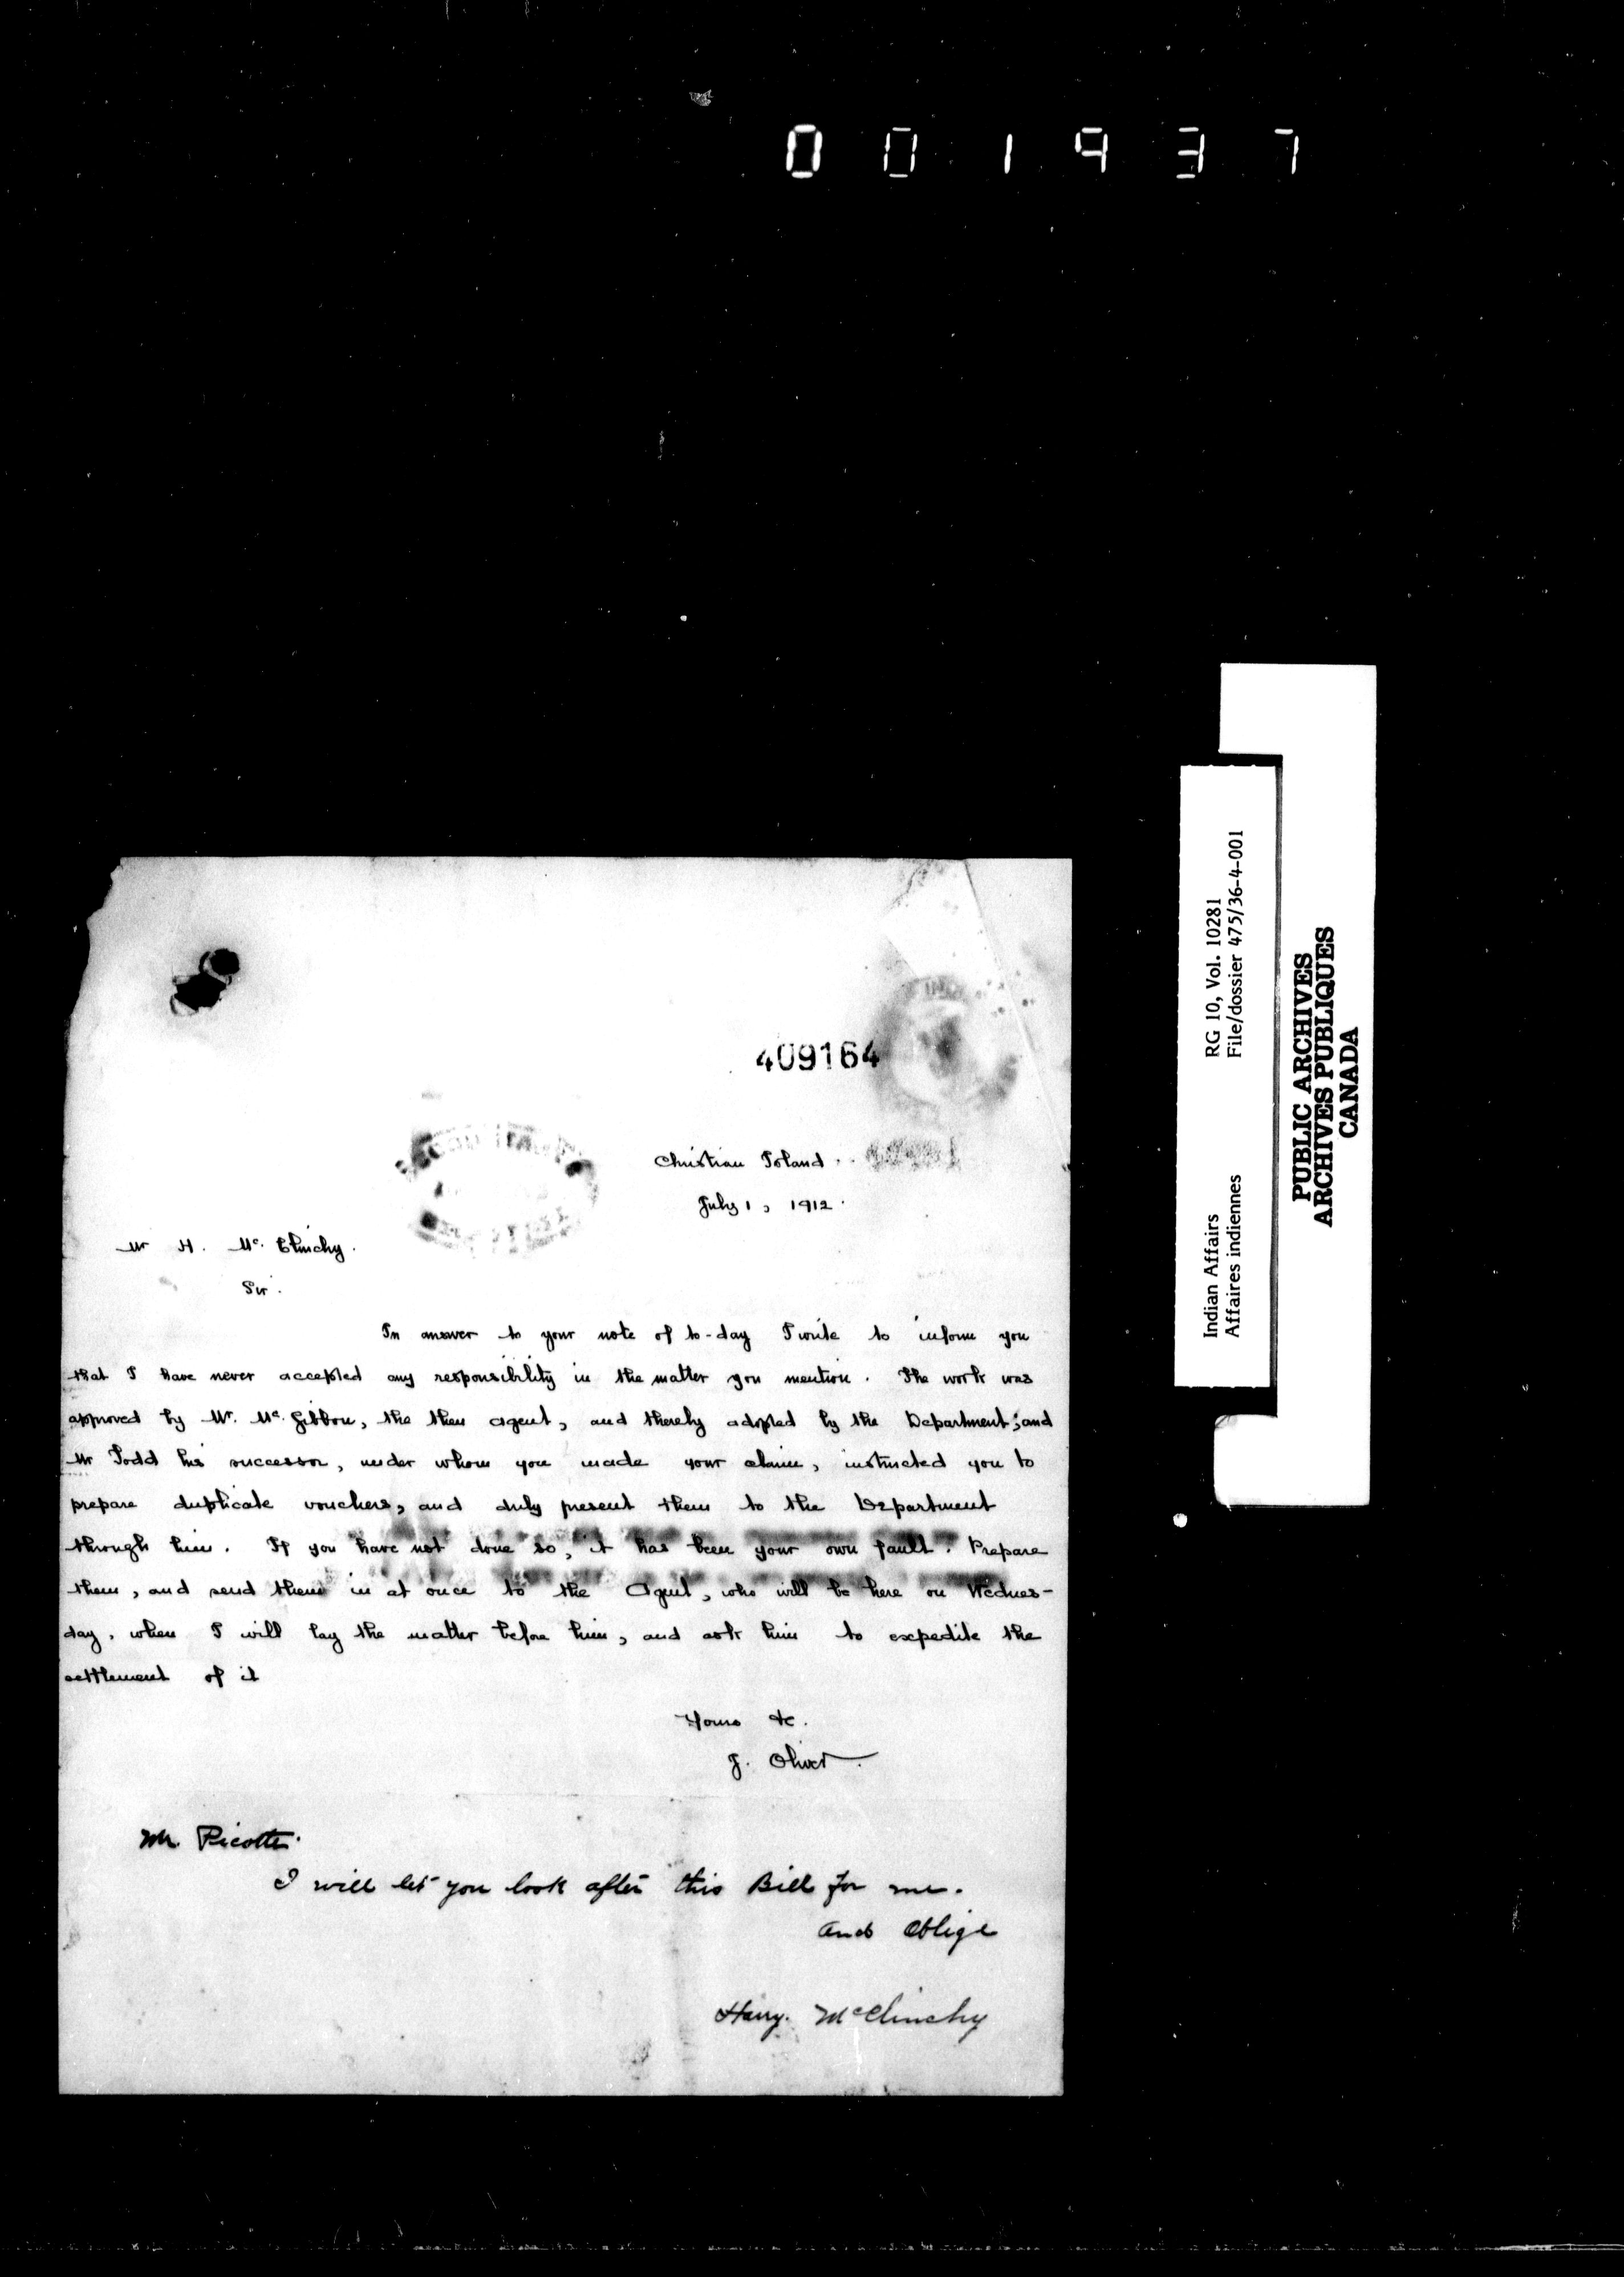 001937
409164
Christian Island.
July 1, 1912.
Mr H. Mc. Clinchy.
Sir.
In answer to your note of to-day I write to inform you
that I have never accepted any responsibility in the matter you mention. The work was
approved by Mr. Mc. Gibbon, the then agent, and thereby adopted by the Department; and
Mr Todd his successor, under whom you made your claim, instructed you to
prepare duplicate vouchers, and duly present them to the Department
through him. If you have not done so, it has been your own fault. Prepare
them, and send them in at once to the Agent, who will be here on Wednes-
day, when I will lay the matter before him, and ask him to expedite the
settlement of it
Yours &c.
J. Oliver.
Mr. Picotte.
I will let you look after this Bill for me.
And Oblige
Harry. McClinchy
Indian Affairs RG 10, Vol. 10281
Affaires indiennes File/dossier 475/36-4-001
PUBLIC ARCHIVES
ARCHIVES PUBLIQUES
CANADA